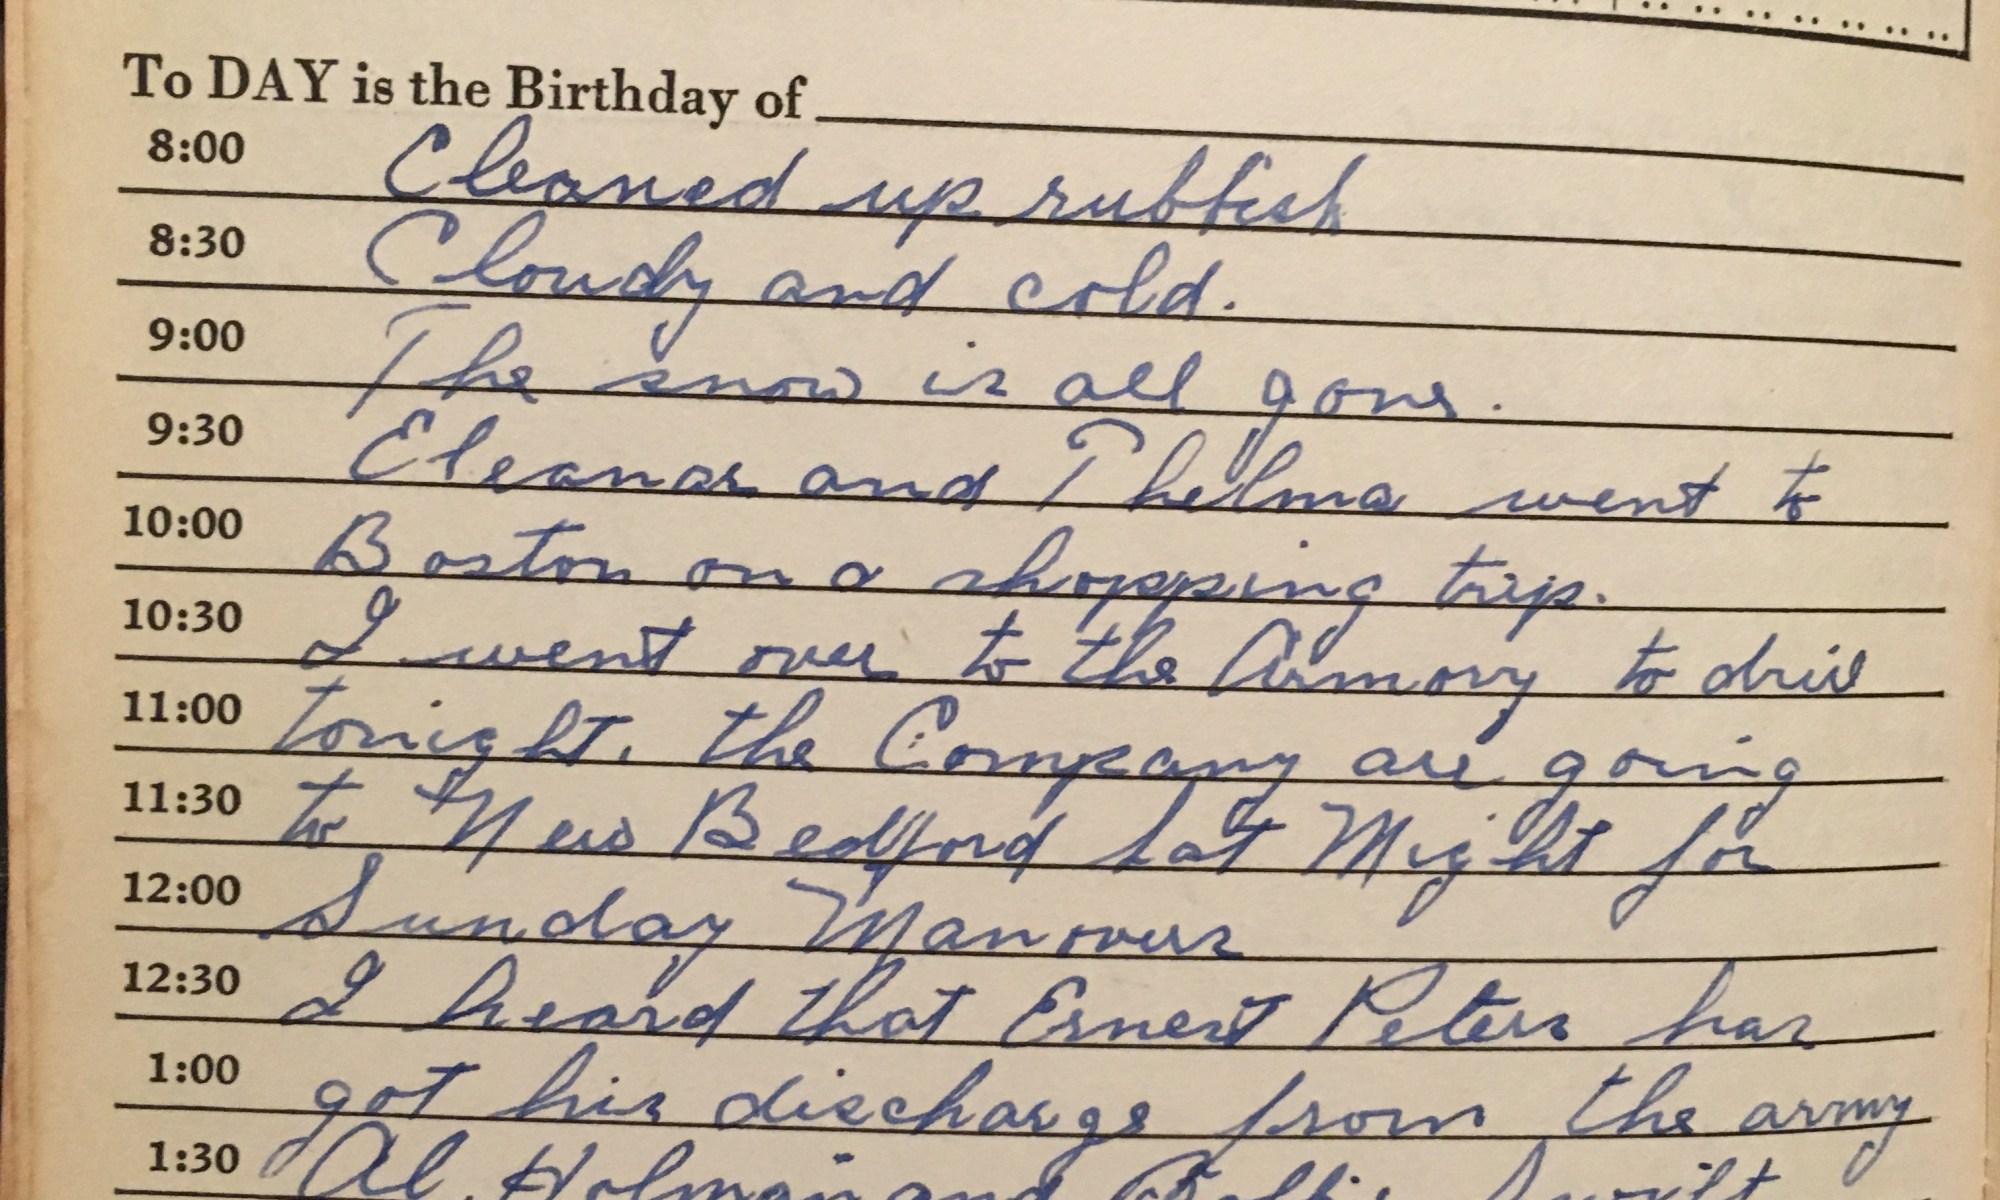 To DAY is the Birthday of
8:00 Cleaned up rubbish
8:30 Cloudy and cold.
9:00 The snow is all gone.
9:30 Eleanor and Thelma went to
10:00 Boston on a shopping trip.
10:30 I went over to the Armory to drill
11:00 tonight. the Company are going
11:30 to New Bedford Sat Night for
12:00 Sunday Manovers
12:30 I heard that Ernest Peters has
1:00 got his discharge from the army
1:30 Al. Holman and Swift